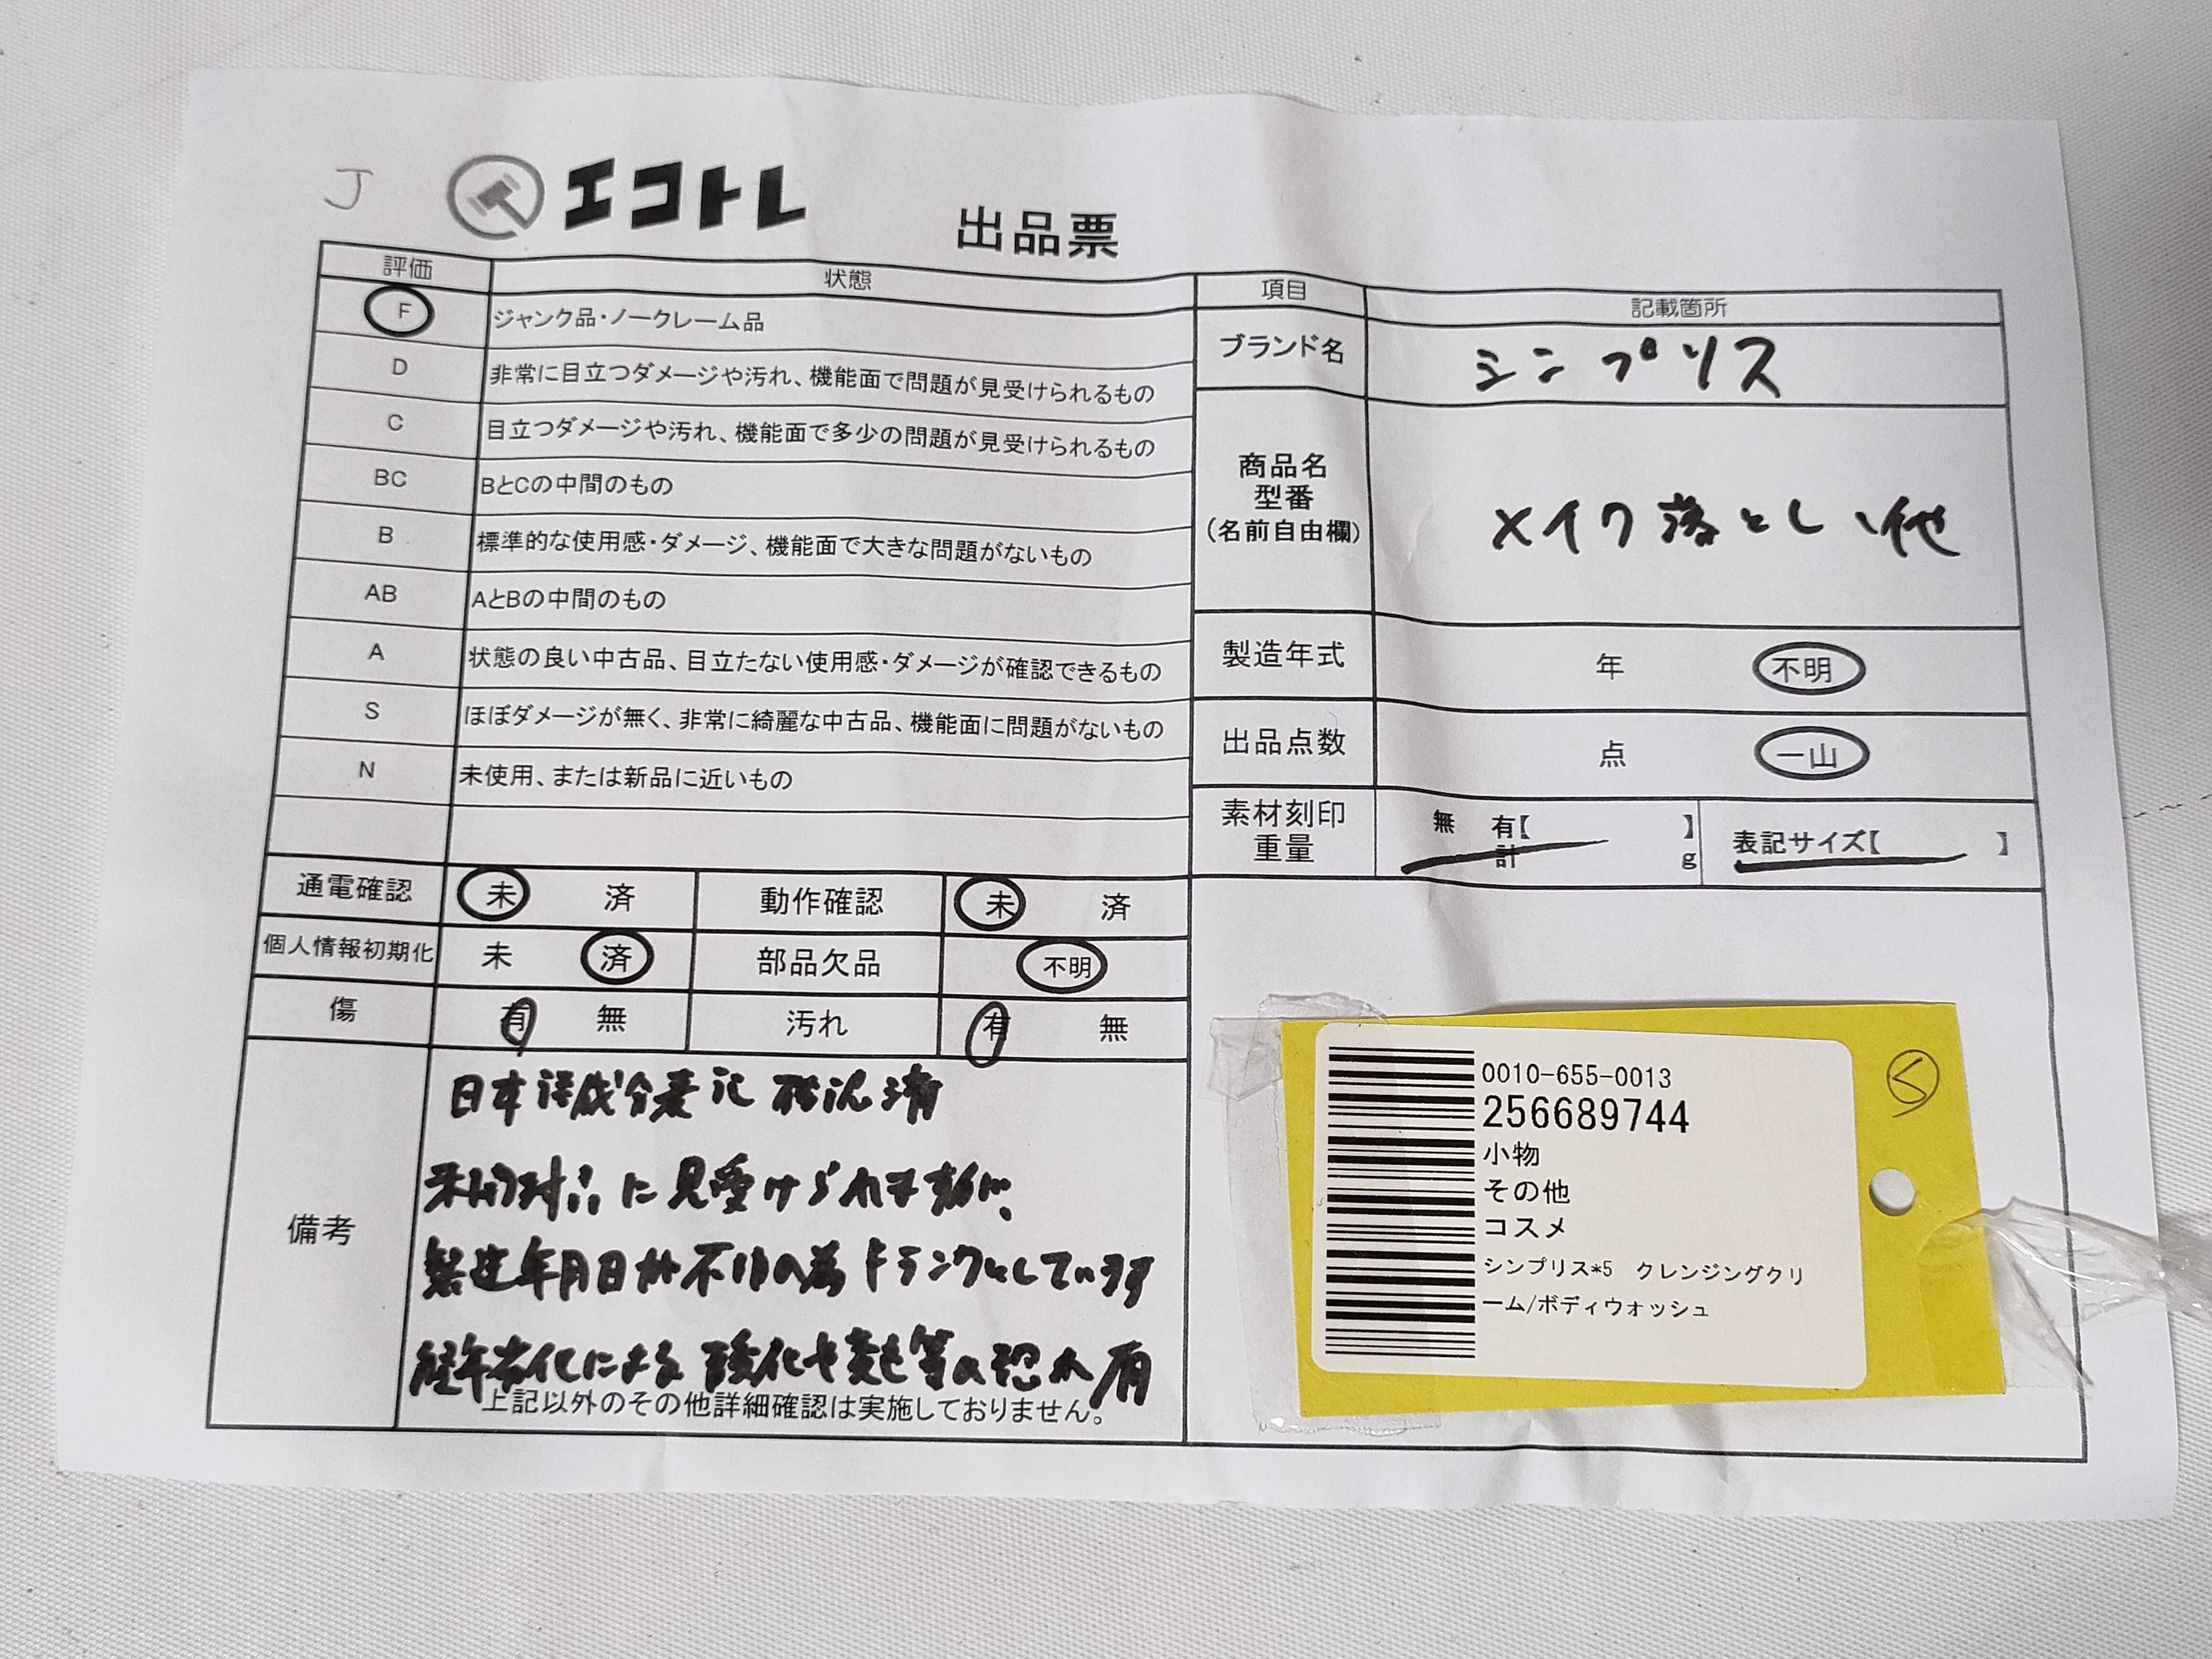 J
エコトレ
出品票
評価 状態
F ジャンク品・ノークレーム品
D 非常に目立つダメージや汚れ、機能面で問題が見受けられるもの
C 目立つダメージや汚れ、機能面で多少の問題が見受けられるもの
BC BとCの中間のもの
B 標準的な使用感・ダメージ、機能面で大きな問題がないもの
AB AとBの中間のもの
A 状態の良い中古品、目立たない使用感・ダメージが確認できるもの
S ほぼダメージが無く、非常に綺麗な中古品、機能面に問題がないもの
N 未使用、または新品に近いもの
通電確認 未 済 動作確認 未 済
個人情報初期化 未 済 部品欠品 不明
傷 有 無 汚れ 有 無
備考
日本語成分表記 確認済
未開封品に見受けられますが、
製造年月日が不明の為Fランクとしています
経年劣化による酸化や変色等の恐れ有
上記以外のその他詳細確認は実施しておりません。
項目 記載箇所
ブランド名 シンプリス
商品名
型番
(名前自由欄)
メイク落とし、他
製造年式 年 不明
出品点数 点 一山
素材刻印
重量
無 有【 】
計 g
表記サイズ【 】
0010-655-0013
256689744
小物
その他
コスメ
シンプリス*5 クレンジングクリ
ーム/ボディウォッシュ
S